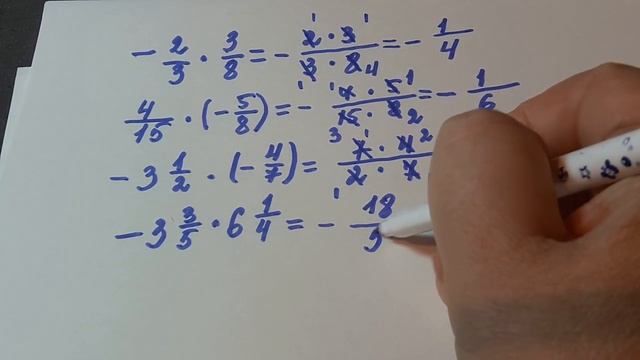 - 2/3 · 3/8 = - 2 · 3 / 3 · 8 4 = - 1/4
4/15 · (- 5/8) = - 4 · 5 1 / 15 · 8 2 = - 1/6
- 3 1/2 · (- 4/7) = 7 · 4 2 / 2 · 7
- 3 3/5 · 6 1/4 = - 18/5